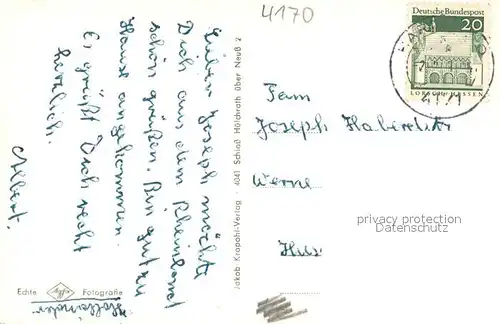 4170
Lieber Joseph möchte
Dich aus dem Rheinland
schön grüßen. Bin gut zu
Hause angekommen.
Es grüßt Dich recht
herzlich.
Albert.
Echte Agfa Fotografie
Jakob Krapohl-Verlag · 4041 Schloß Hülchrath über Neuß 2
Deutsche Bundespost
20
LORSCH/HESSEN
4171
Fam
Joseph
Werne
privacy protection
DATENSCHUTZ